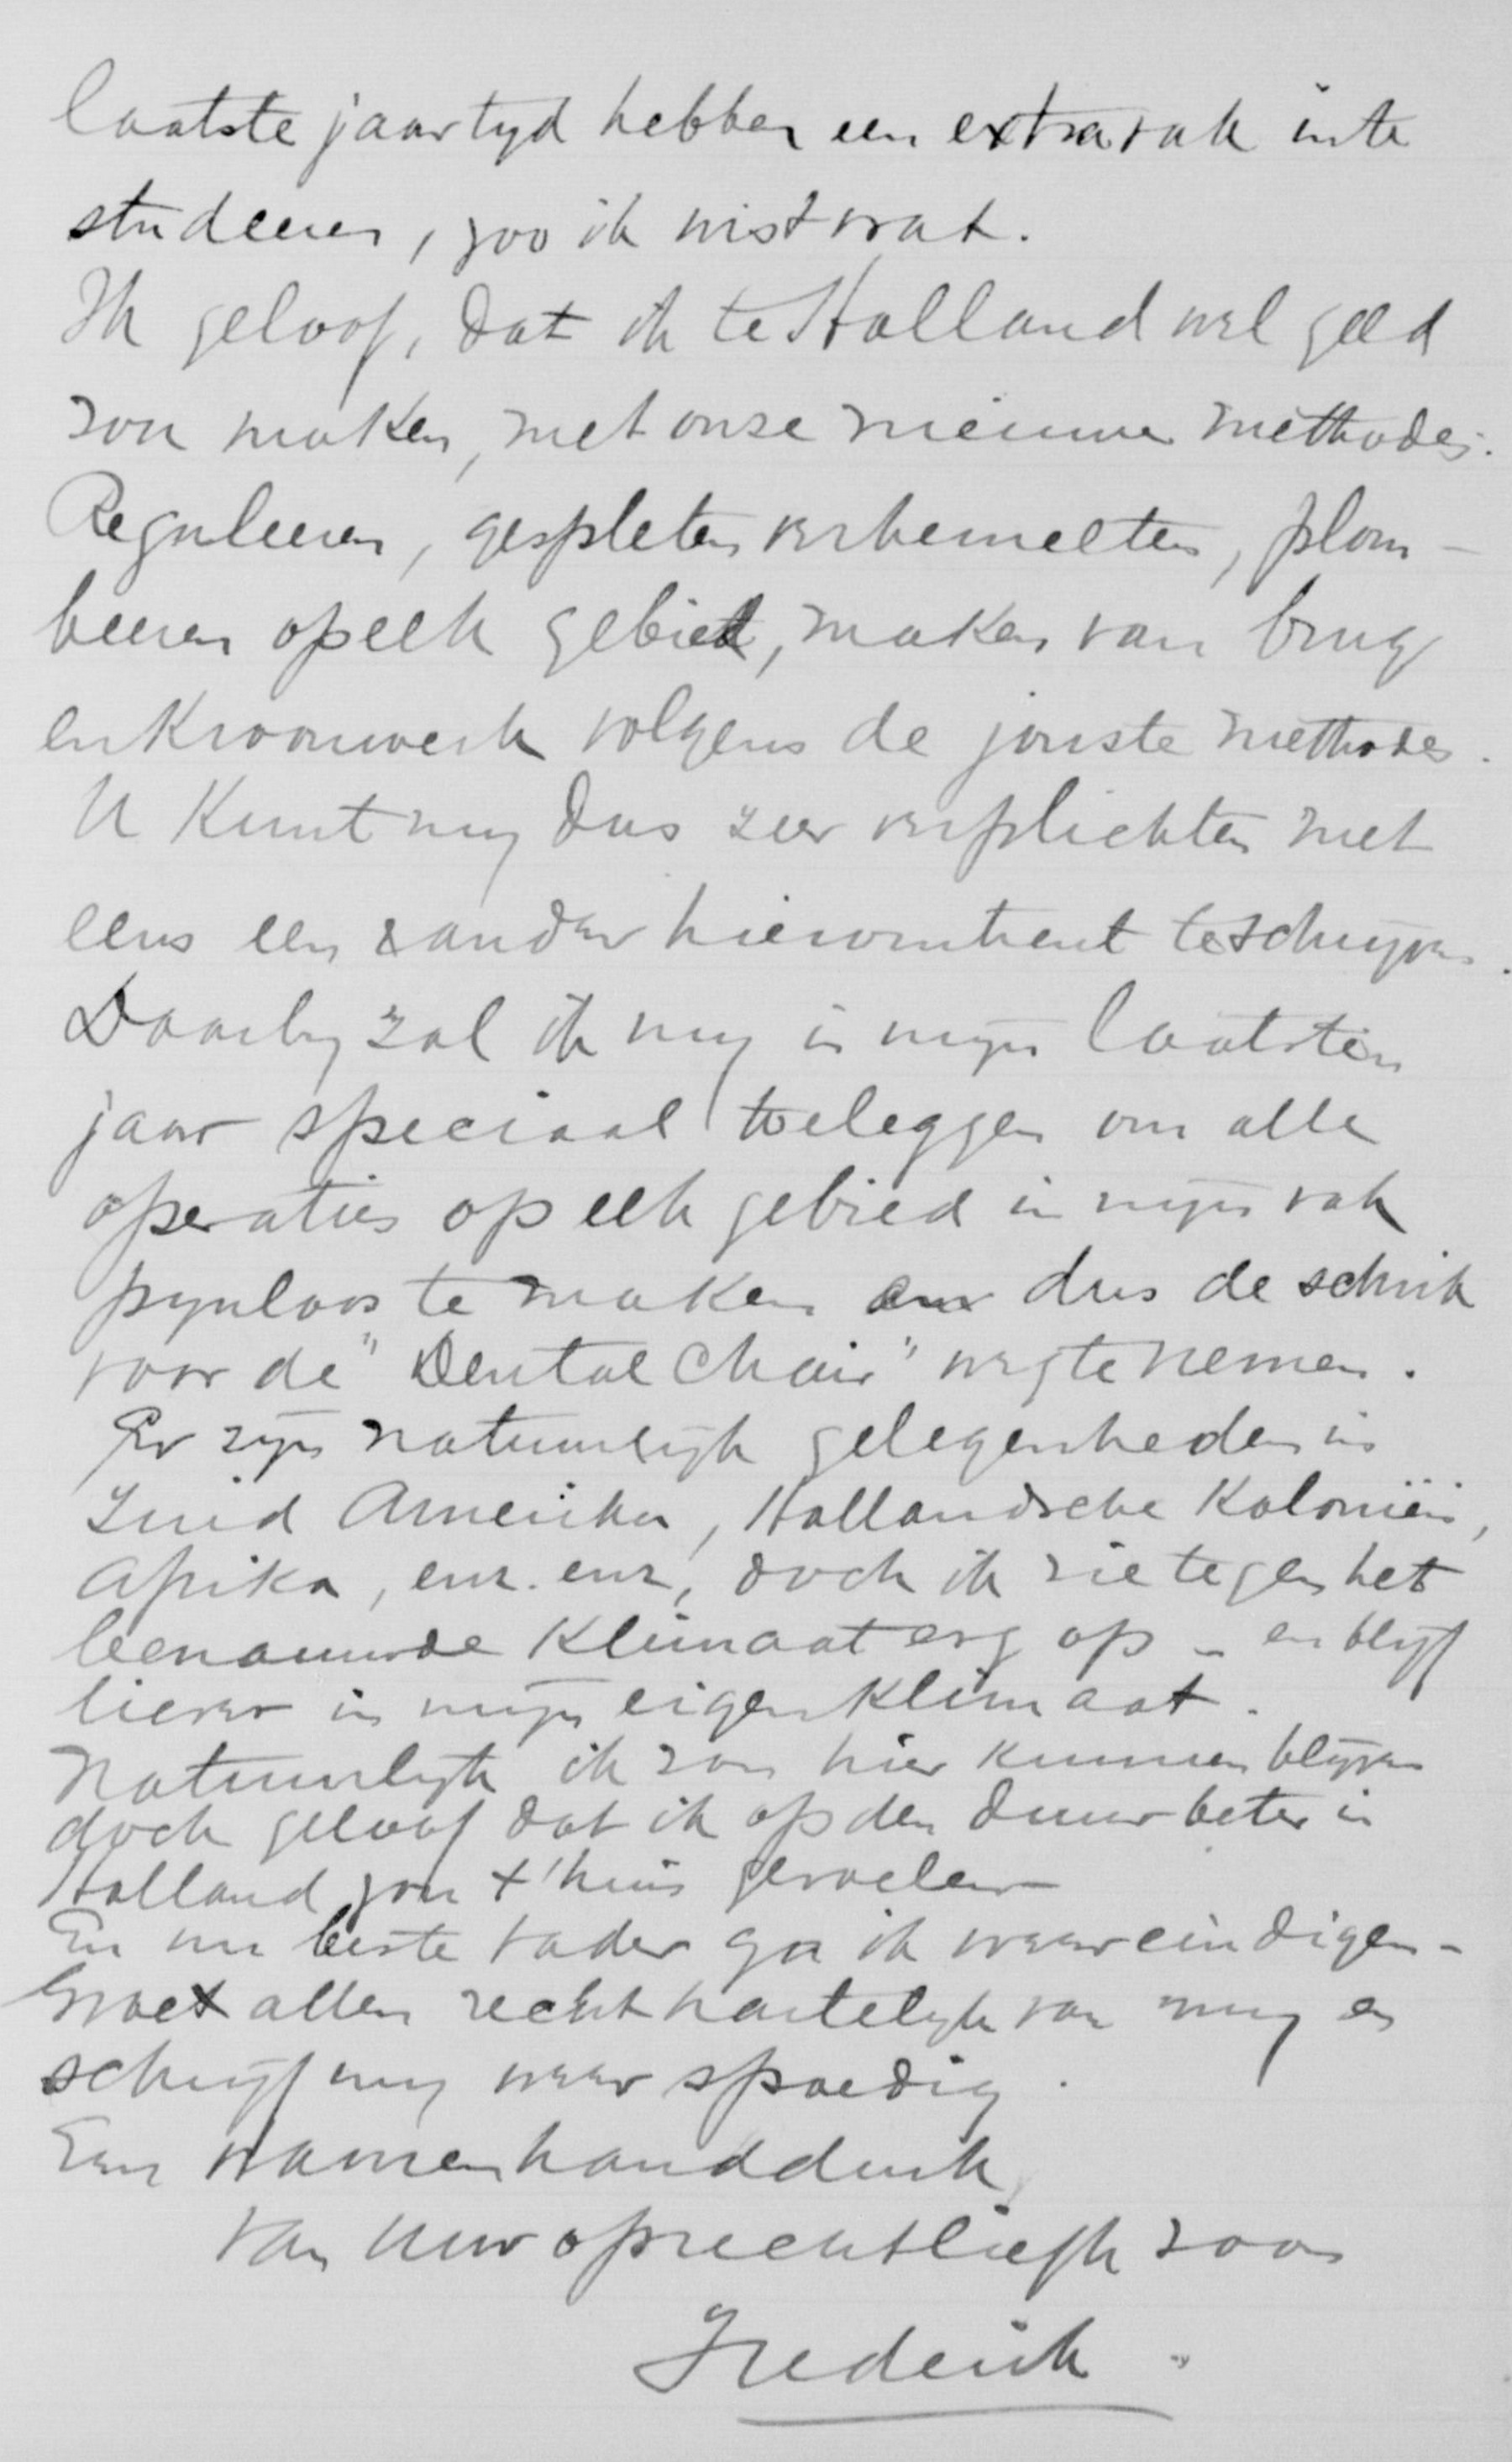 laatste jaar tyd hebben een extra vak in te
studeeren, zoo ik wist wat.
Ik geloof, dat ik te Holland wel geld
zou maken, met onze nieuwe methodes.
Reguleeren, gespleten verhemelten, plom-
beeren op elk gebied, maken van brug
en Kroonwerk volgens de jonste methodes.
U Kunt my dus zeer verplichten met
eens een & ander hieromtrent te schryven.
Daarby zal ik my in myn laatsten
jaar speciaal toeleggen om alle
operaties op elk gebied in myn vak
pynloos te maken om dus de schrik
voor de "Dental Chair" weg te nemen.
Er zyn natuurlyk gelegenheden in
Zuid Amerika, Hollandsche Koloniën,
Afrika, enz. enz, doch ik zie tegen het
benauwde Klimaat erg op - en blyf
liever in myn eigen Klimaat.
Natuurlyk ik zou hier kunnen blyven
doch geloof dat ik op den duur beter in
Holland zou t'huis gevoelen
En nu beste vader ga ik weer eindigen -
Groet allen recht hartelyk van my en
schryf my weer spoedig.
Een warmen handdruk
van Uw oprecht liefh zoon
Frederik.